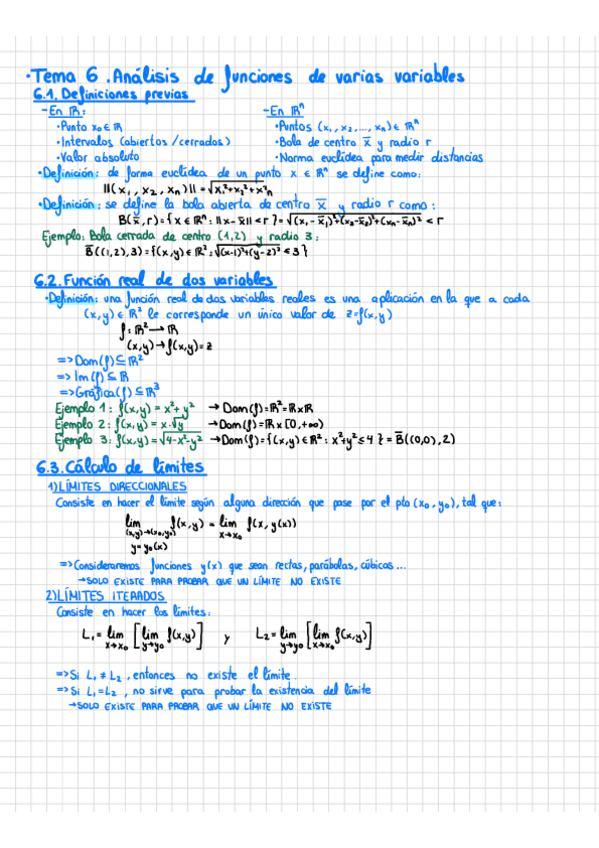 ·Tema 6. Análisis de funciones de varias variables
6.1. Definiciones previas
-En ℝ:
·Punto x₀ ∈ ℝ
·Intervalos (abiertos/cerrados)
·Valor absoluto
-En ℝⁿ
·Puntos (x₁, x₂, ..., xₙ) ∈ ℝⁿ
·Bola de centro x̄ y radio r
·Norma euclídea para medir distancias
·Definición: de forma euclídea de un punto x ∈ ℝⁿ se define como:
||(x₁, x₂, xₙ)|| = √x₁²+x₂²+x²n
·Definición: se define la bola abierta de centro x̄ y radio r como:
B(x̄, r) = {x ∈ ℝⁿ: ||x-x̄|| < r} = √(x₁-x̄₁)²+(x₂-x̄₂)²+(xₙ-x̄ₙ)² < r
Ejemplo: Bola cerrada de centro (1,2) y radio 3:
B̄((1,2),3) = {(x,y) ∈ ℝ²: √(x-1)²+(y-2)² ≤ 3}
6.2. Función real de dos variables
·Definición: una función real de dos variables reales es una aplicación en la que a cada
(x,y) ∈ ℝ² le corresponde un único valor de z=f(x,y)
f: ℝ² → ℝ
(x,y) → f(x,y) = z
=> Dom(f) ⊆ ℝ²
=> Im(f) ⊆ ℝ
=> Gráfica(f) ⊆ ℝ³
Ejemplo 1: f(x,y) = x²+y² → Dom(f) = ℝ² = ℝxℝ
Ejemplo 2: f(x,y) = x·√y → Dom(f) = ℝ x [0,+∞)
Ejemplo 3: f(x,y) = √4-x²-y² → Dom(f) = {(x,y) ∈ ℝ²: x²+y² ≤ 4} = B̄((0,0), 2)
6.3. Cálculo de límites
1) LÍMITES DIRECCIONALES
Consiste en hacer el límite según alguna dirección que pase por el pto (x₀, y₀), tal que:
lim f(x,y) = lim f(x, y(x))
(x,y)→(x₀,y₀) x→x₀
y=y₀(x)
=> Consideraremos funciones y(x) que sean rectas, parábolas, cúbicas...
→ SOLO EXISTE PARA PROBAR QUE UN LÍMITE NO EXISTE
2) LÍMITES ITERADOS
Consiste en hacer los límites:
L₁ = lim [lim f(x,y)] y L₂ = lim [lim f(x,y)]
x→x₀ y→y₀ y→y₀ x→x₀
=> Si L₁ ≠ L₂, entonces no existe el límite.
=> Si L₁ = L₂, no sirve para probar la existencia del límite
→ SOLO EXISTE PARA PROBAR QUE UN LÍMITE NO EXISTE